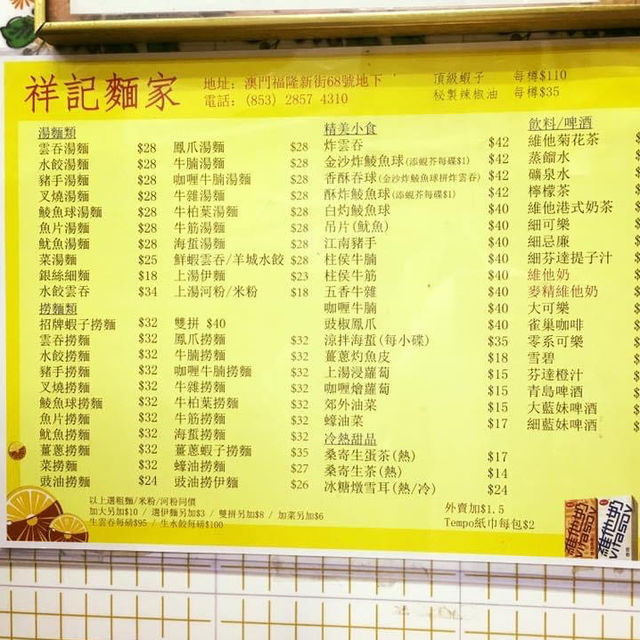 祥記麵家
地址: 澳門福隆新街68號地下
電話: (853) 2857 4310
頂級蝦子 每樽$110
秘製辣椒油 每樽$35
湯麵類
雲吞湯麵 $28
水餃湯麵 $28
豬手湯麵 $28
叉燒湯麵 $28
鯪魚球湯麵 $28
魚片湯麵 $28
魷魚湯麵 $28
菜湯麵 $25
銀絲細麵 $18
水餃雲吞 $34
鳳爪湯麵 $28
牛腩湯麵 $28
咖喱牛腩湯麵 $28
牛雜湯麵 $28
牛柏葉湯麵 $28
牛筋湯麵 $28
海蜇湯麵 $28
鮮蝦雲吞/羊城水餃 $28
上湯伊麵 $23
上湯河粉/米粉 $18
撈麵類
招牌蝦子撈麵 $32
雲吞撈麵 $32
水餃撈麵 $32
豬手撈麵 $32
叉燒撈麵 $32
鯪魚球撈麵 $32
魚片撈麵 $32
魷魚撈麵 $32
薑蔥撈麵 $32
菜撈麵 $32
豉油撈麵 $24
雙拼 $40
鳳爪撈麵 $32
牛腩撈麵 $32
咖喱牛腩撈麵 $32
牛雜撈麵 $32
牛柏葉撈麵 $32
牛筋撈麵 $32
海蜇撈麵 $32
薑蔥蝦子撈麵 $35
蠔油撈麵 $27
豉油撈伊麵 $26
精美小食
炸雲吞 $42
金沙炸鯪魚球(添蜆芥每碟$1) $42
香酥吞球(金沙炸鯪魚球拼炸雲吞) $42
酥炸鯪魚球(添蜆芥每碟$1) $42
白灼鯪魚球 $40
吊片(魷魚) $40
江南豬手 $40
柱侯牛腩 $40
柱侯牛筋 $40
五香牛雜 $40
咖喱牛腩 $40
豉椒鳳爪 $40
涼拌海蜇(每小碟) $35
薑蔥灼魚皮 $18
上湯浸蘿蔔 $15
咖喱燴蘿蔔 $15
郊外油菜 $15
蠔油菜 $17
冷熱甜品
桑寄生蛋茶(熱) $17
桑寄生茶(熱) $14
冰糖燉雪耳(熱/冷) $24
飲料/啤酒
維他菊花茶
蒸餾水
礦泉水
檸檬茶
維他港式奶茶
細可樂
細忌廉
細芬達提子汁
維他奶
麥精維他奶
大可樂
雀巢咖啡
零系可樂
雪碧
芬達橙汁
青島啤酒
大藍妹啤酒
細藍妹啤酒
以上選粗麵/米粉/河粉同價
加大另加$10 / 選伊麵另加$3 / 雙拼另加$8 / 加菜另加$6
生雲吞每磅$95 / 生水餃每磅$100
外賣加$1.5
Tempo紙巾每包$2
維他奶
VITASOY
維他奶
VITASOY